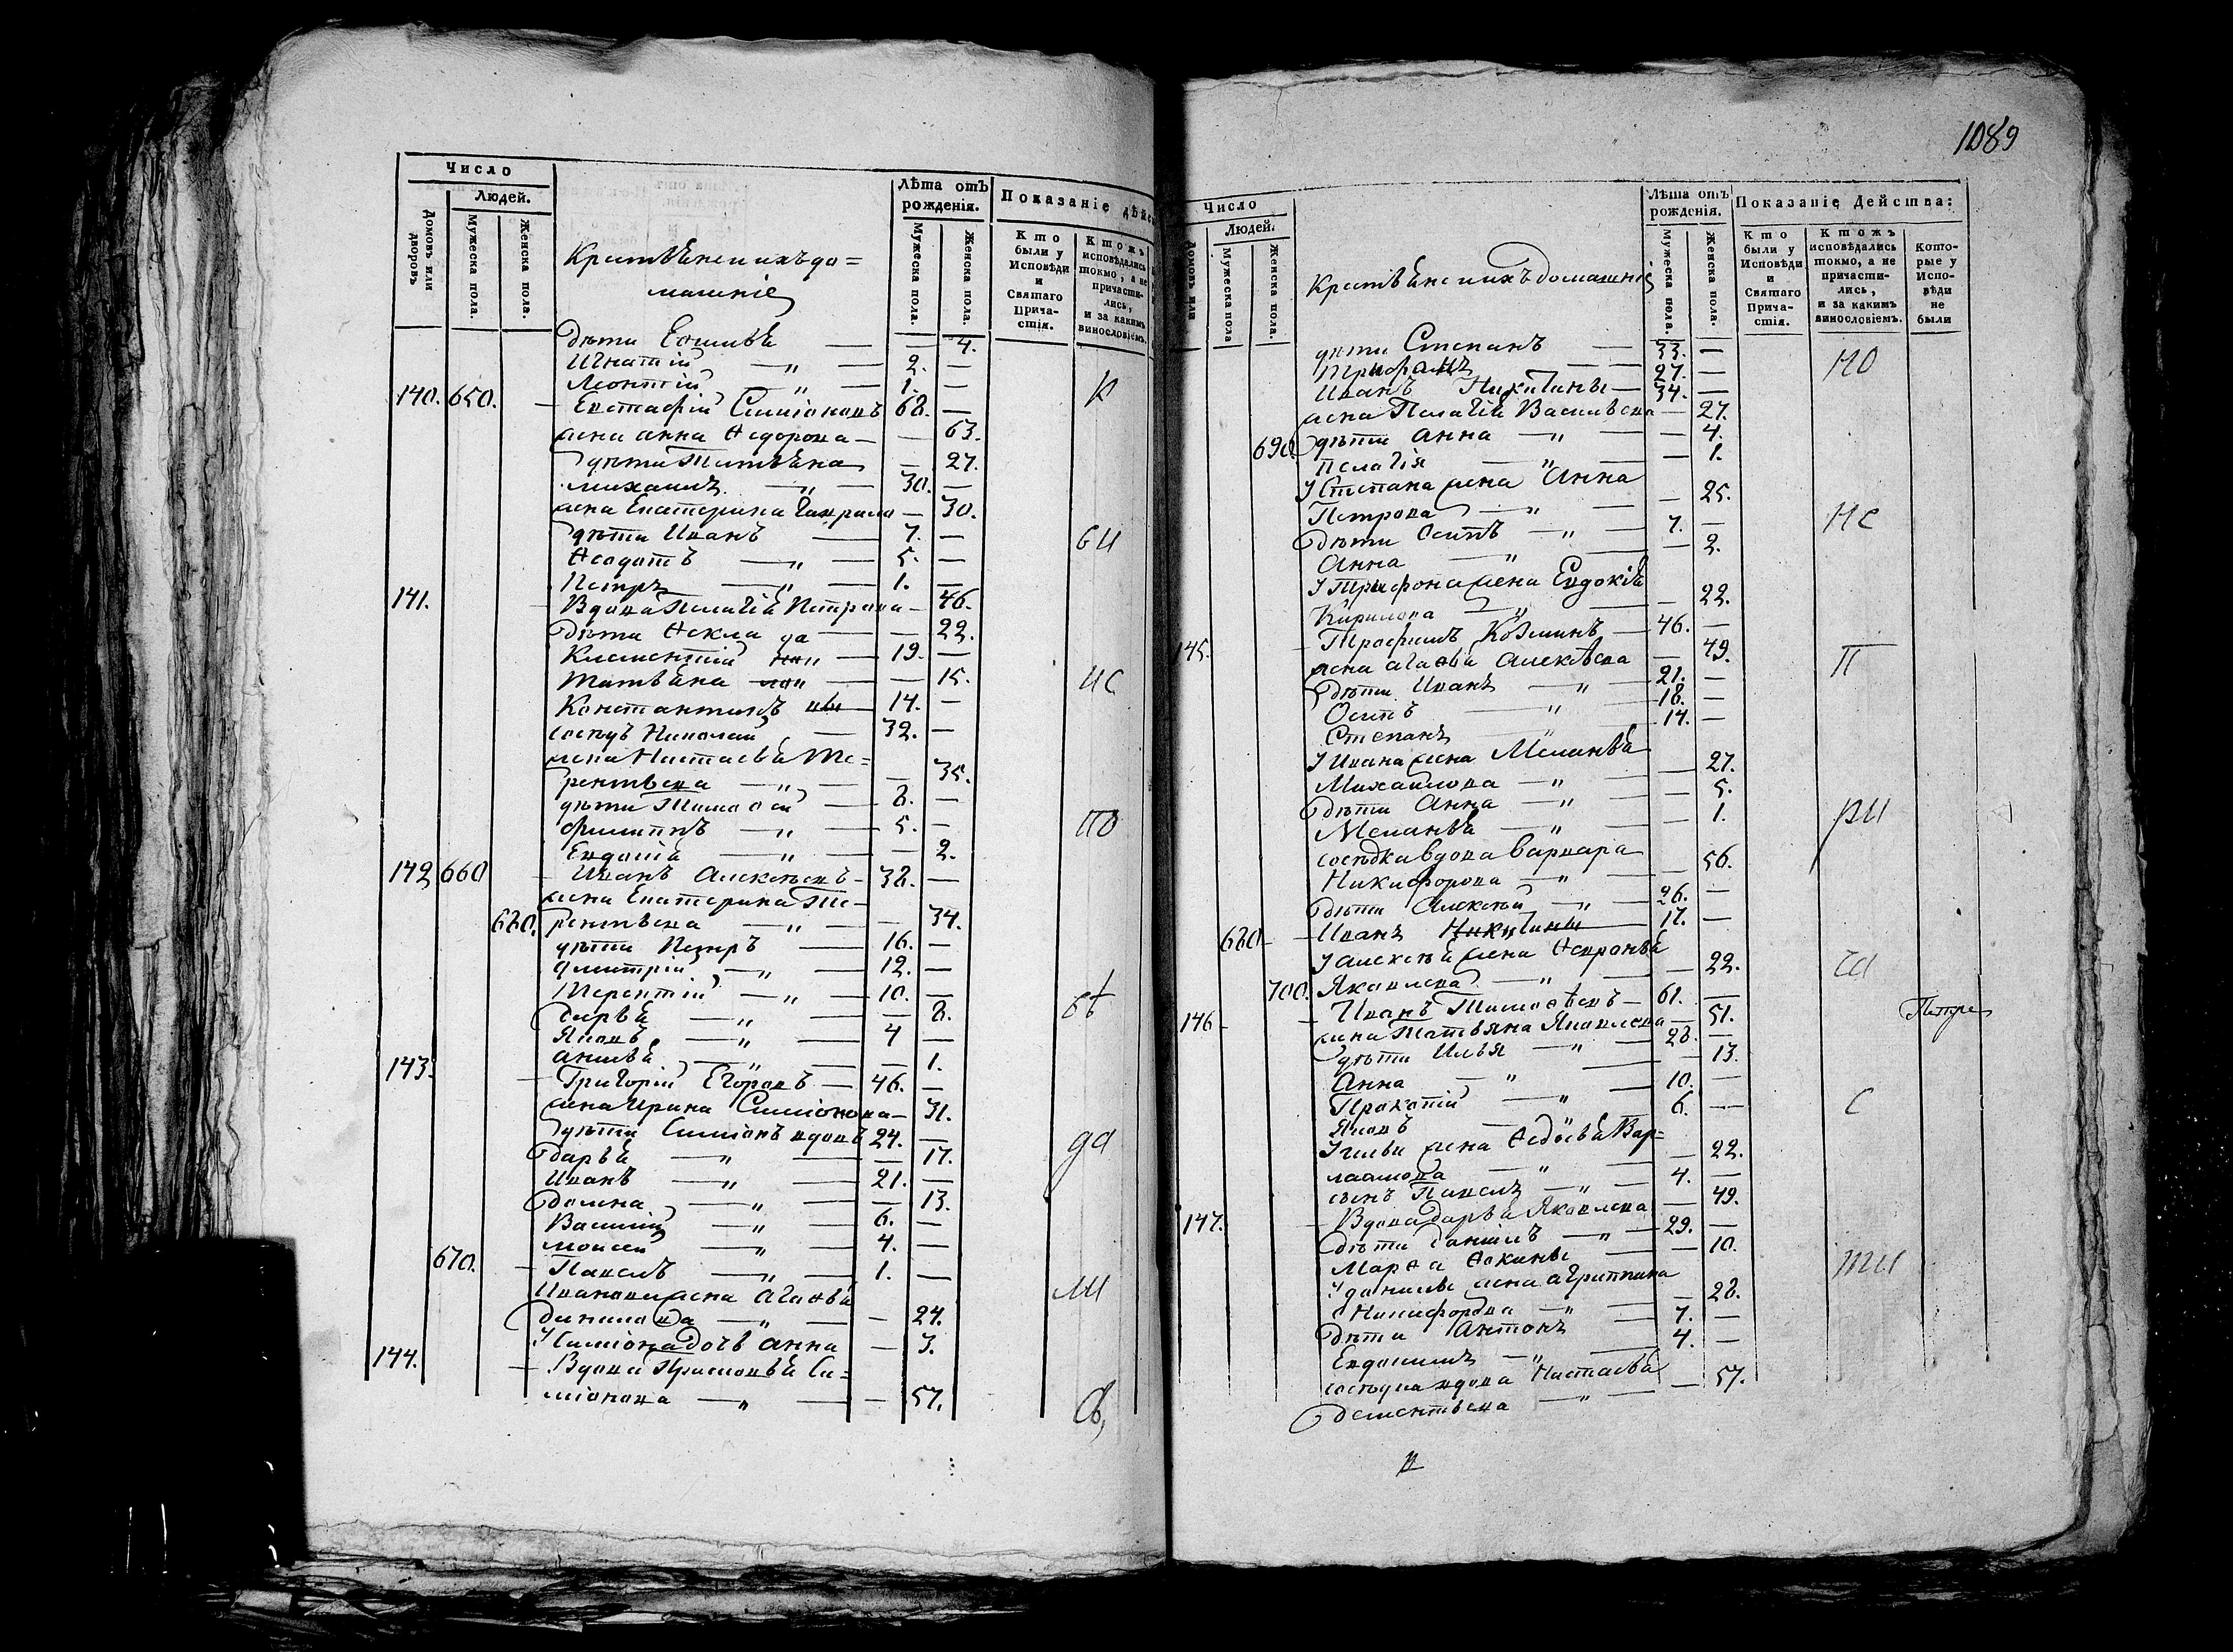 Число
Людей.
Домовъ или дворовъ
Мужеска пола.
Женска пола.
Крестьяне и ихъ до=
машніе
Лѣта отъ рожденія.
Мужеска пола.
Женска пола.
Показаніе дѣйс
Кто были у Исповѣди и Святаго Прича-стія.
Ктожъ исповѣдались токмо, а не причасти-лись, и за какимъ винословіемъ.
Дѣти — — 4.
Игнатій — „ — 2. —
Леонтій — „ — 1. —
140. 650. Евстафій Симіоновъ 68. —
жена анна Ѳедорова — — 63.
дѣти Татьяна — 27.
михаилъ — „ — 30. —
жена Екатерина Гаврило — 30.
дѣти Иванъ — 7. —
Ѳеодотъ — „ — 5. —
Петръ — „ — 1. —
141. Вдова Пелагія Петрова — 46.
Дѣти Ѳекла — — 22.
Климентій — 19. —
Татьяна — — 15.
Константинъ — 14. —
сосѣдъ Николай — 32. —
жена Настасья Те=
рентьева — „ — — 35.
дѣти Тимоѳей — 8. —
Филиппъ — „ — 5. —
Евдокія — „ — — 2.
142 660 Иванъ Алексѣевъ — 38. —
жена Екатерина Те—
680. рентьева — „ — — 34.
дѣти Петръ — 16. —
Дмитрій — „ — 12. —
Терентій — „ — 10. —
Дарья — „ — — 8.
Яковъ — „ — 4 —
анисья — „ — — 1.
143. Григорій Егоровъ — 46. —
жена Ирина Симіонова — 31.
дѣти Симіонъ вдовъ 24. —
Дарья — „ — — 17.
Иванъ — „ — 21. —
Домна — „ — — 13.
Василій — „ — 6. —
моисей — „ — 4. —
670. Павелъ — „ — 1. —
Иванова жена агаѳья
Данилова — „ — — 24.
У Симіона дочь анна — 3.
144. Вдова Прасковья Си=
міонова — „ — — 57.
1089
Число
Людей.
Домовъ или
Мужеска пола
Женска пола.
Крестьяне и ихъ домашніе
Лѣта отъ рожденія.
Мужеска пола.
Женска пола.
Показаніе Действа:
Кто были у Исповѣди и Святаго Прича-стія.
Ктожъ исповѣдались токмо, а не причасти-лись, и за какимъ винословіемъ.
Кото-рые у Испо-вѣди не были
дѣти Степанъ — 33. —
Трифонъ — 27. —
Иванъ Никитины — 34. —
жена Пелагія Васильева — 27.
690. дѣти анна — „ — — 4.
Пелагія — „ — — 1.
У Степана жена Анна
Петрова — „ — — 25.
Дѣти Осипъ — „ — 7. —
Анна — „ — — 2.
У Трифона жена Евдокія
Кирилова — „ — — 22.
145. Трофимъ Козминъ — 46. —
жена агаѳья Алексѣева — 49.
Дѣти Иванъ — „ — 21. —
Осипъ — „ — 18. —
Степанъ — „ — 14. —
У Ивана жена Меланья
Михаилова — „ — — 27.
Дѣти Анна — „ — — 5.
Меланья — „ — — 1.
сосѣдка вдова варвара
Никифорова — „ — — 56.
Дѣти Алексѣй — „ — 26. —
680 Иванъ Никитины 17. —
У алексѣя жена Ѳевронья
700. Яковлева — „ — — 22.
146 Иванъ Тимоѳѣевъ — 61. —
жена Татьяна Яковлева — 51.
дѣти Илья — „ — 28. —
Анна — „ — — 13.
Прокопій — „ — 10. —
Яковъ — 6. —
У Ильи жена Ѳедосья Вар=
лаамова — „ — — 22.
сынъ Павелъ — „ — 4. —
147. Вдова дарья Яковлева — 49.
Дѣти Даніилъ — „ — 29. —
Марѳа — — 10.
У данилы жена агриппина
Никифорова — „ — — 28.
Дѣти Антонъ — 7. —
Евдокимъ — „ — 4. —
сосѣдка вдова Настасья
Дементьева — „ — — 57.
К
ЄИ
ИС
ПО
БѢ
ДА
ЛИ
СЬ,
НО
НЕ
П
РИ
ЧА
С
ТИ